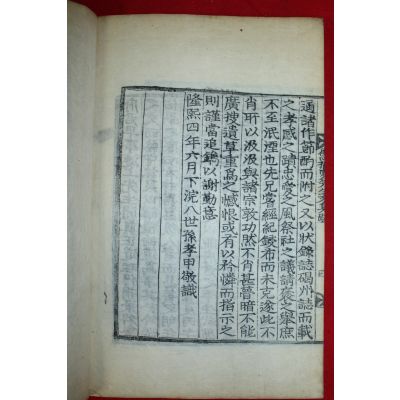 適諸作節酌而附之又以狀錄誌碣州誌而載
之孝感之蹟忠愛之風祭社之議請褒之擧庶
不至泯煙也先兄嘗經紀鋟布而未克遂此不
肖所以汲汲與諸宗敦功然不肖甚瞢暗不能
廣搜遺草重爲之憾恨或有以矜憐而指示之
則謹當追鋟以謝勤意
隆熙四年六月下浣八世孫孝甲敬識